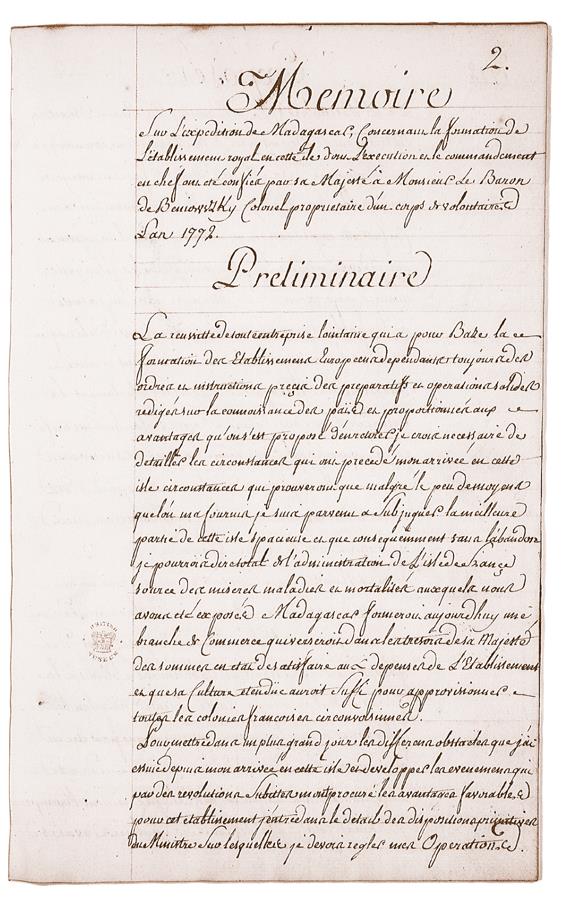 2.
Memoire
Sur L'expedition de Madagascar, Concernant la formation de
L'établissement royal en cette ile dont L'execution et le commandement
en chef ont eté confiés par sa Majesté à Monsieur Le Baron
de Beniowszky Colonel proprietaire d'un corps de volontaires
L'an 1772.
Preliminaire
La reussitte de toute entreprise lointaire qui a pour Baze la
formation des Etablissements Europeens dependants toujours des
ordres et instructions precis des preparatifs et operations solides
redigés sur la connoissance des païs et proportionnés aux
avantages qu'on s'est proposé d'en retirer, je crois necessaire de
detailler les circonstances qui ont precedé mon arrivée en cette
isle circonstances qui prouveront que malgré le peu de moyens
que l'on m'a fournis je suis parvenu à Subjuguer la meilleure
partie de cette isle spacieuse et que consequemment sans l'abandon
je pourrois dire total de l'administration de L'isle de France
source des miseres maladies et mortalités auxquels nous
avons eté exposés Madagascar formeroit aujourd'huy une
branche de Commerce qui verseroit dans les tresors de sa Majesté
des sommes en etat de satisfaire aux depenses de L'Etablissement
et que sa Culture etendüe auroit Suffi pour approvisionner
toutes les colonies francoises circonvoisines.
Pour mettre dans un plus grand jour les differens obstacles que j'ai
essuié depuis mon arrivée en cette isle et developper les evenemens qui
par des revolutions Subittes m'ont procuré les avantages favorables
pour cet etablissement j'entre dans le detail des dispositions primitives
du Ministre Sur lesquelles je devois regler mes Operations.
BRITISH MUSEUM